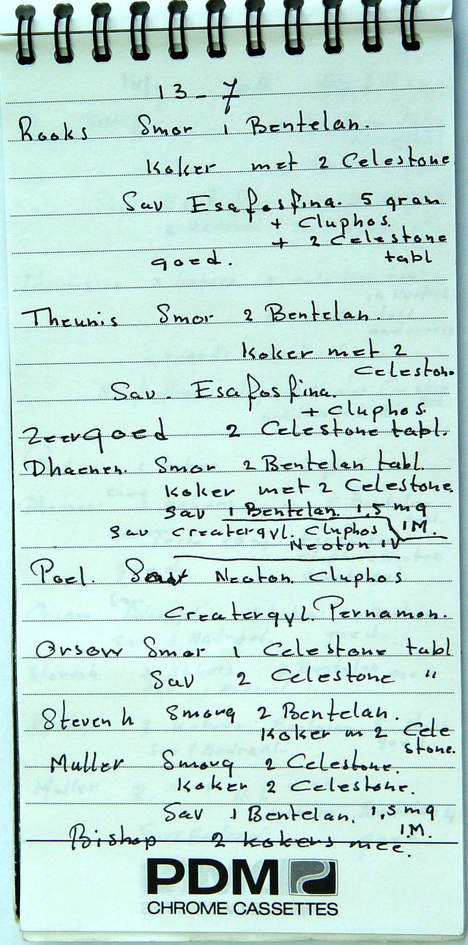 13-7
Rooks Smor 1 Bentelan.
Koker met 2 Celestone
Sav Esafosfina. 5 gram
+ Cluphos.
+ 2 Celestone
goed. tabl
Theunis Smor 2 Bentelan.
Koker met 2
Celestone
Sav. Esafosfina.
+ Cluphos.
Zeergoed 2 Celestone tabl.
Dhaenen. Smor 2 Bentelan tabl.
Koker met 2 Celestone.
Sav 1 Bentelan. 1,5 mg
Sav Creatergyl. Cluphos I.M.
Neoton IV
Poel. Sav Neoton. Cluphos
Creatergyl. Pernamon.
Orsow Smor 1 Celestone tabl
Sav 2 Celestone "
Steven h Smorg 2 Bentelan.
Koker m 2 Cele
stone.
Muller Smorg 2 Celestone.
Koker 2 Celestone.
Sav 1 Bentelan. 1,5 mg
I.M.
Bishop 2 kokers mee.
PDM
CHROME CASSETTES